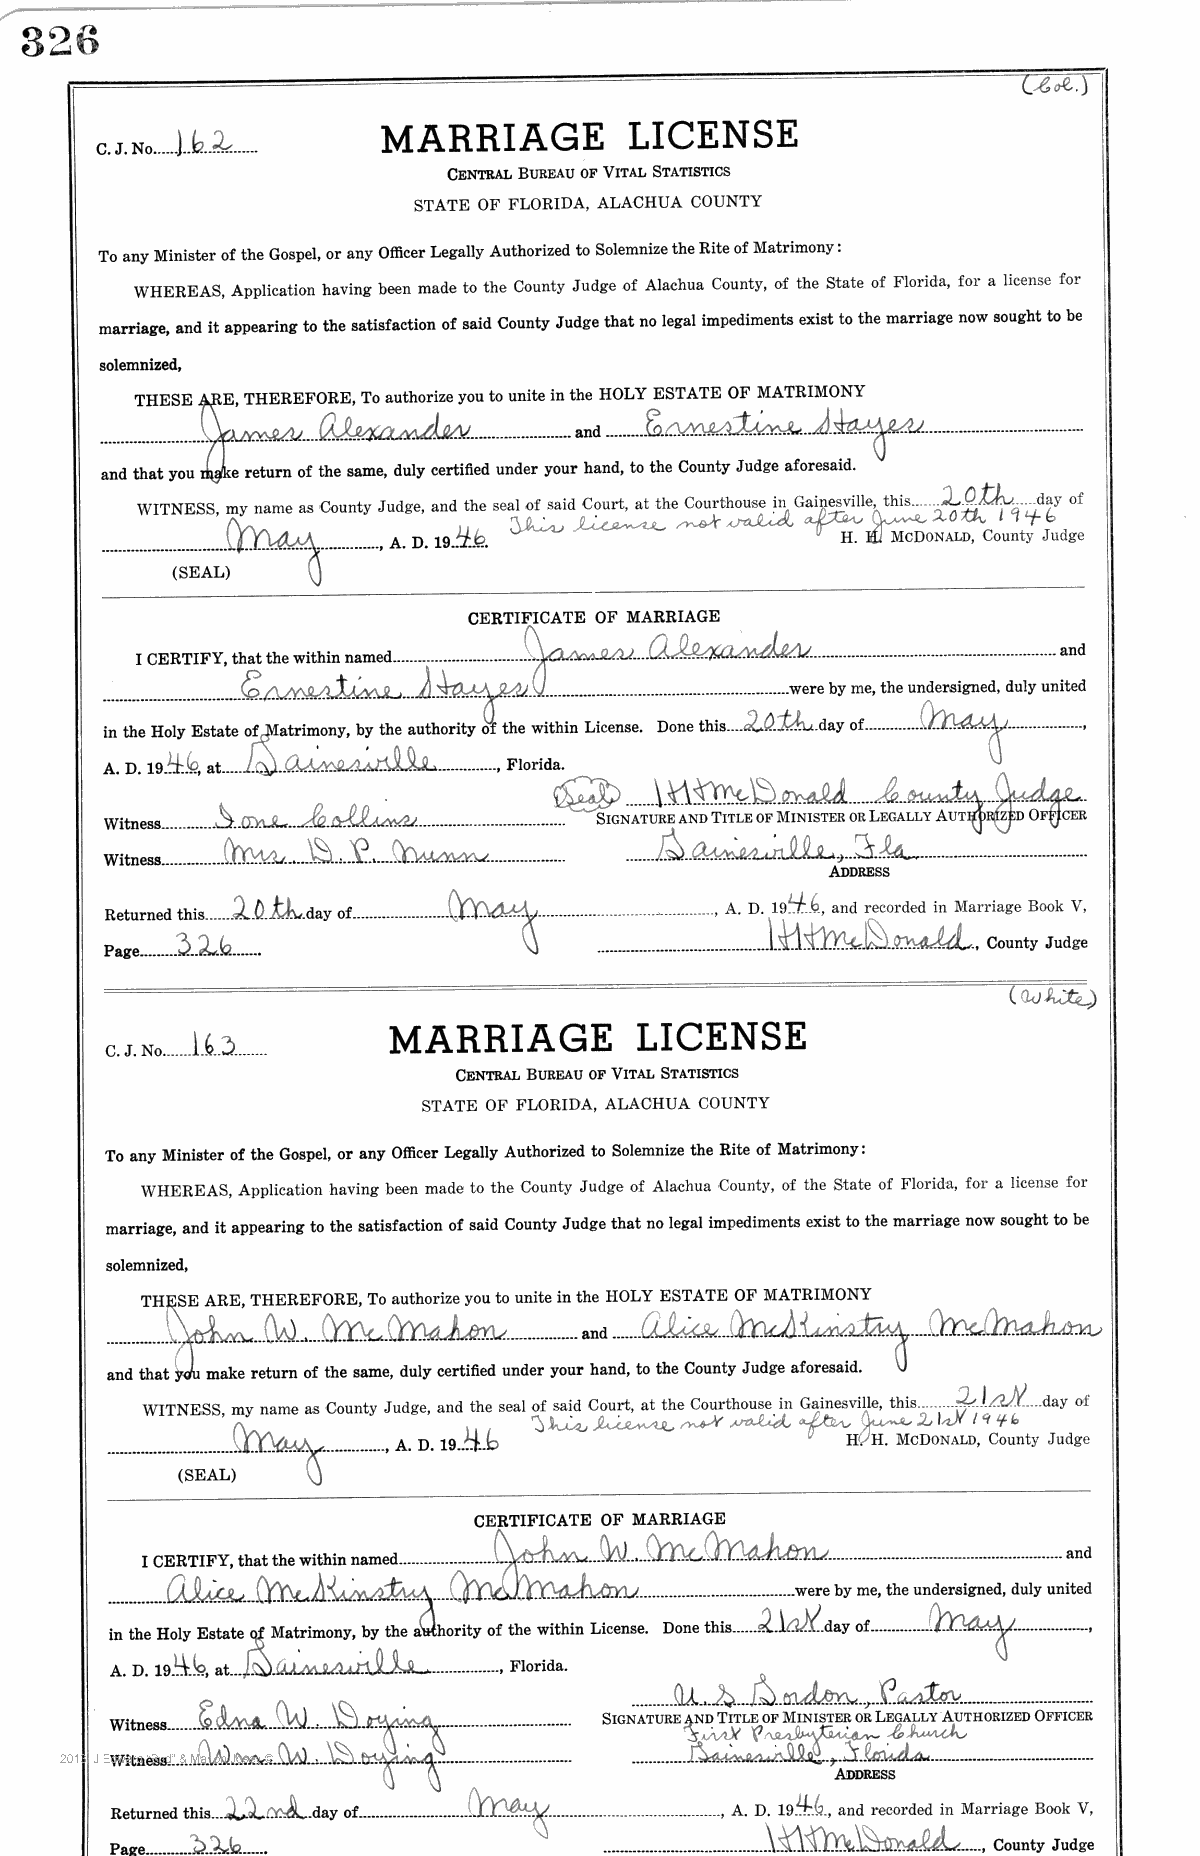 326
(Col.)
C. J. No. 162
MARRIAGE LICENSE
CENTRAL BUREAU OF VITAL STATISTICS
STATE OF FLORIDA, ALACHUA COUNTY
To any Minister of the Gospel, or any Officer Legally Authorized to Solemnize the Rite of Matrimony:
WHEREAS, Application having been made to the County Judge of Alachua County, of the State of Florida, for a license for
marriage, and it appearing to the satisfaction of said County Judge that no legal impediments exist to the marriage now sought to be
solemnized,
THESE ARE, THEREFORE, To authorize you to unite in the HOLY ESTATE OF MATRIMONY
James Alexander and Ernestine Hayes
and that you make return of the same, duly certified under your hand, to the County Judge aforesaid.
WITNESS, my name as County Judge, and the seal of said Court, at the Courthouse in Gainesville, this 20th day of
This license not valid after June 20th 1946
May, A. D. 1946. H. H. MCDONALD, County Judge
(SEAL)
CERTIFICATE OF MARRIAGE
I CERTIFY, that the within named James Alexander and
Ernestine Hayes were by me, the undersigned, duly united
in the Holy Estate of Matrimony, by the authority of the within License. Done this 20th day of May,
A. D. 1946, at Gainesville, Florida.
(Seal) HHMcDonald County Judge
Witness Ione Collins SIGNATURE AND TITLE OF MINISTER OR LEGALLY AUTHORIZED OFFICER
Witness Mrs D. P. Nunn Gainesville, Fla
ADDRESS
Returned this 20th day of May, A. D. 1946, and recorded in Marriage Book V,
Page 326. HHMcDonald, County Judge
(White)
C. J. No. 163
MARRIAGE LICENSE
CENTRAL BUREAU OF VITAL STATISTICS
STATE OF FLORIDA, ALACHUA COUNTY
To any Minister of the Gospel, or any Officer Legally Authorized to Solemnize the Rite of Matrimony:
WHEREAS, Application having been made to the County Judge of Alachua County, of the State of Florida, for a license for
marriage, and it appearing to the satisfaction of said County Judge that no legal impediments exist to the marriage now sought to be
solemnized,
THESE ARE, THEREFORE, To authorize you to unite in the HOLY ESTATE OF MATRIMONY
John W. McMahon and Alice McKinstry McMahon
and that you make return of the same, duly certified under your hand, to the County Judge aforesaid.
WITNESS, my name as County Judge, and the seal of said Court, at the Courthouse in Gainesville, this 21st day of
This license not valid after June 21st 1946
May, A. D. 1946 H. H. MCDONALD, County Judge
(SEAL)
CERTIFICATE OF MARRIAGE
I CERTIFY, that the within named John W. McMahon and
Alice McKinstry McMahon were by me, the undersigned, duly united
in the Holy Estate of Matrimony, by the authority of the within License. Done this 21st day of May,
A. D. 1946, at Gainesville, Florida.
U. S Gordon, Pastor
Witness Edna W. Doying SIGNATURE AND TITLE OF MINISTER OR LEGALLY AUTHORIZED OFFICER
First Presbyterian Church
Witness Wm W. Doying Gainesville, Florida
ADDRESS
Returned this 22nd day of May, A. D. 1946, and recorded in Marriage Book V,
Page 326. HHMcDonald, County Judge